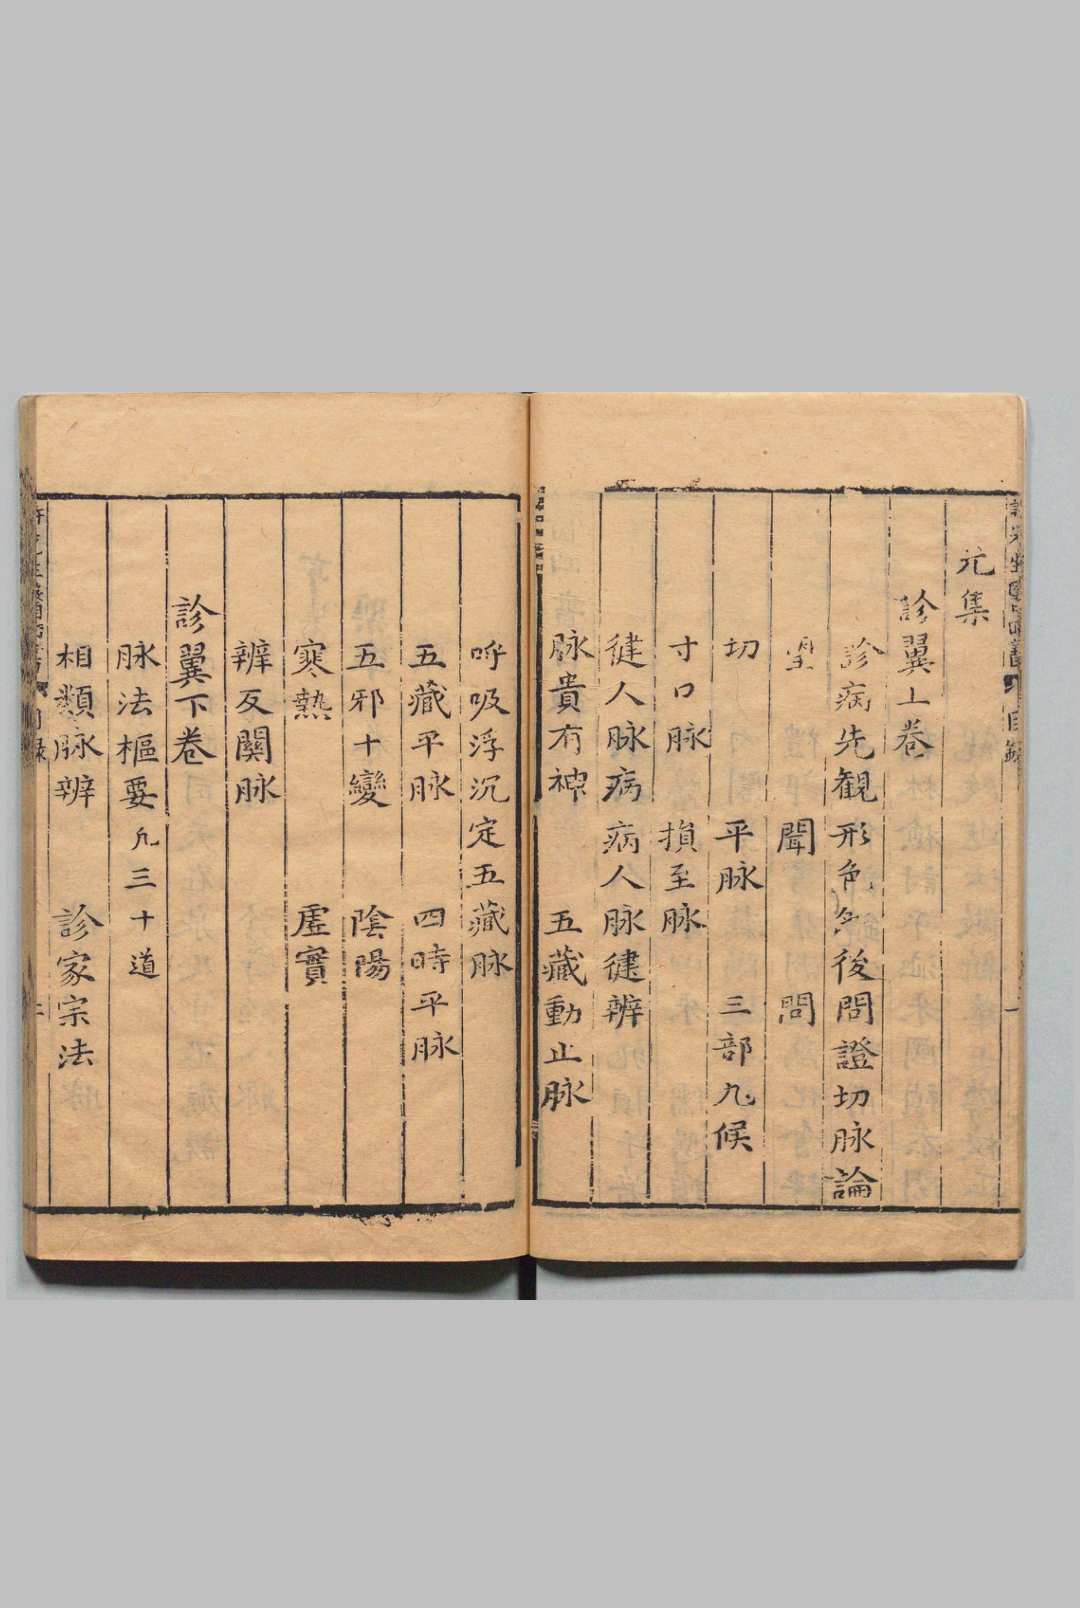 元集
診翼上卷
診病先観形色然後問證切脉論
望 聞 問
切 平脉 三部九候
寸口脉 損至脉
健人脉病病人脉健辨
脉貴有神 五藏動止脉
呼吸浮沉定五藏脉
五藏平脉 四時平脉
五邪十變 陰陽
寒熱 虛實
辨反關脉
診翼下卷
脉法樞要凡三十道
相類脉辨 診家宗法